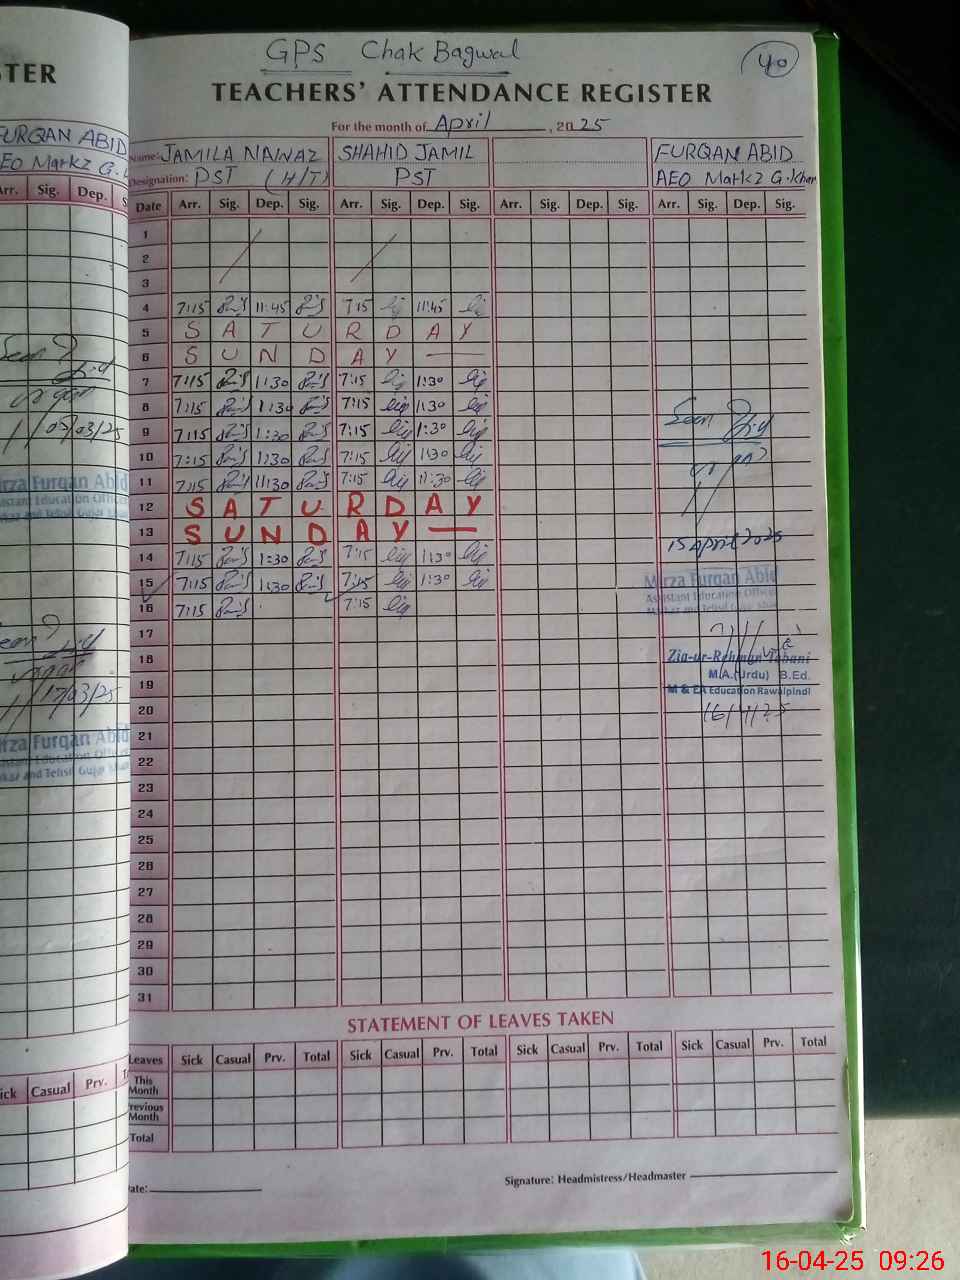 GPS Chak Bagwal
40
TEACHERS' ATTENDANCE REGISTER
For the month of April, 2025
Name: JAMILA NAWAZ SHAHID JAMIL FURQAN ABID
Designation: PST (H/T) PST AEO Markz G.Khan
Date Arr. Sig. Dep. Sig. Arr. Sig. Dep. Sig. Arr. Sig. Dep. Sig. Arr. Sig. Dep. Sig.
1
2
3
4 7:15 11:45 7:15 11:45
5 S A T U R D A Y
6 S U N D A Y
7 7:15 1:30 7:15 1:30
8 7:15 1:30 7:15 1:30
9 7:15 1:30 7:15 1:30
10 7:15 1:30 7:15 1:30
11 7:15 11:30 7:15 11:30
12 S A T U R D A Y
13 S U N D A Y
14 7:15 1:30 7:15 1:30
15 7:15 1:30 7:15 1:30
16 7:15 7:15
17
18
19
20
21
22
23
24
25
26
27
28
29
30
31
Seen
15 April 2025
Mirza Furqan Abid
Assistant Education Officer
Markaz and Tehsil Gujar Khan
Zia-ur-Rehman Tabani
M.A.(Urdu) B.Ed.
M & EA Education Rawalpindi
16/4/25
STATEMENT OF LEAVES TAKEN
Leaves Sick Casual Prv. Total Sick Casual Prv. Total Sick Casual Prv. Total Sick Casual Prv. Total
This Month
Previous Month
Total
Date:
Signature: Headmistress/Headmaster
STER
FURQAN ABID
AEO Markz G.
Arr. Sig. Dep.
Seen
/03/25
Mirza Furqan Abid
Assistant Education Officer
Seen
17/03/25
Mirza Furqan Abid
Assistant Education Officer
Markaz and Tehsil Gujar Khan
Sick Casual Prv.
16-04-25 09:26